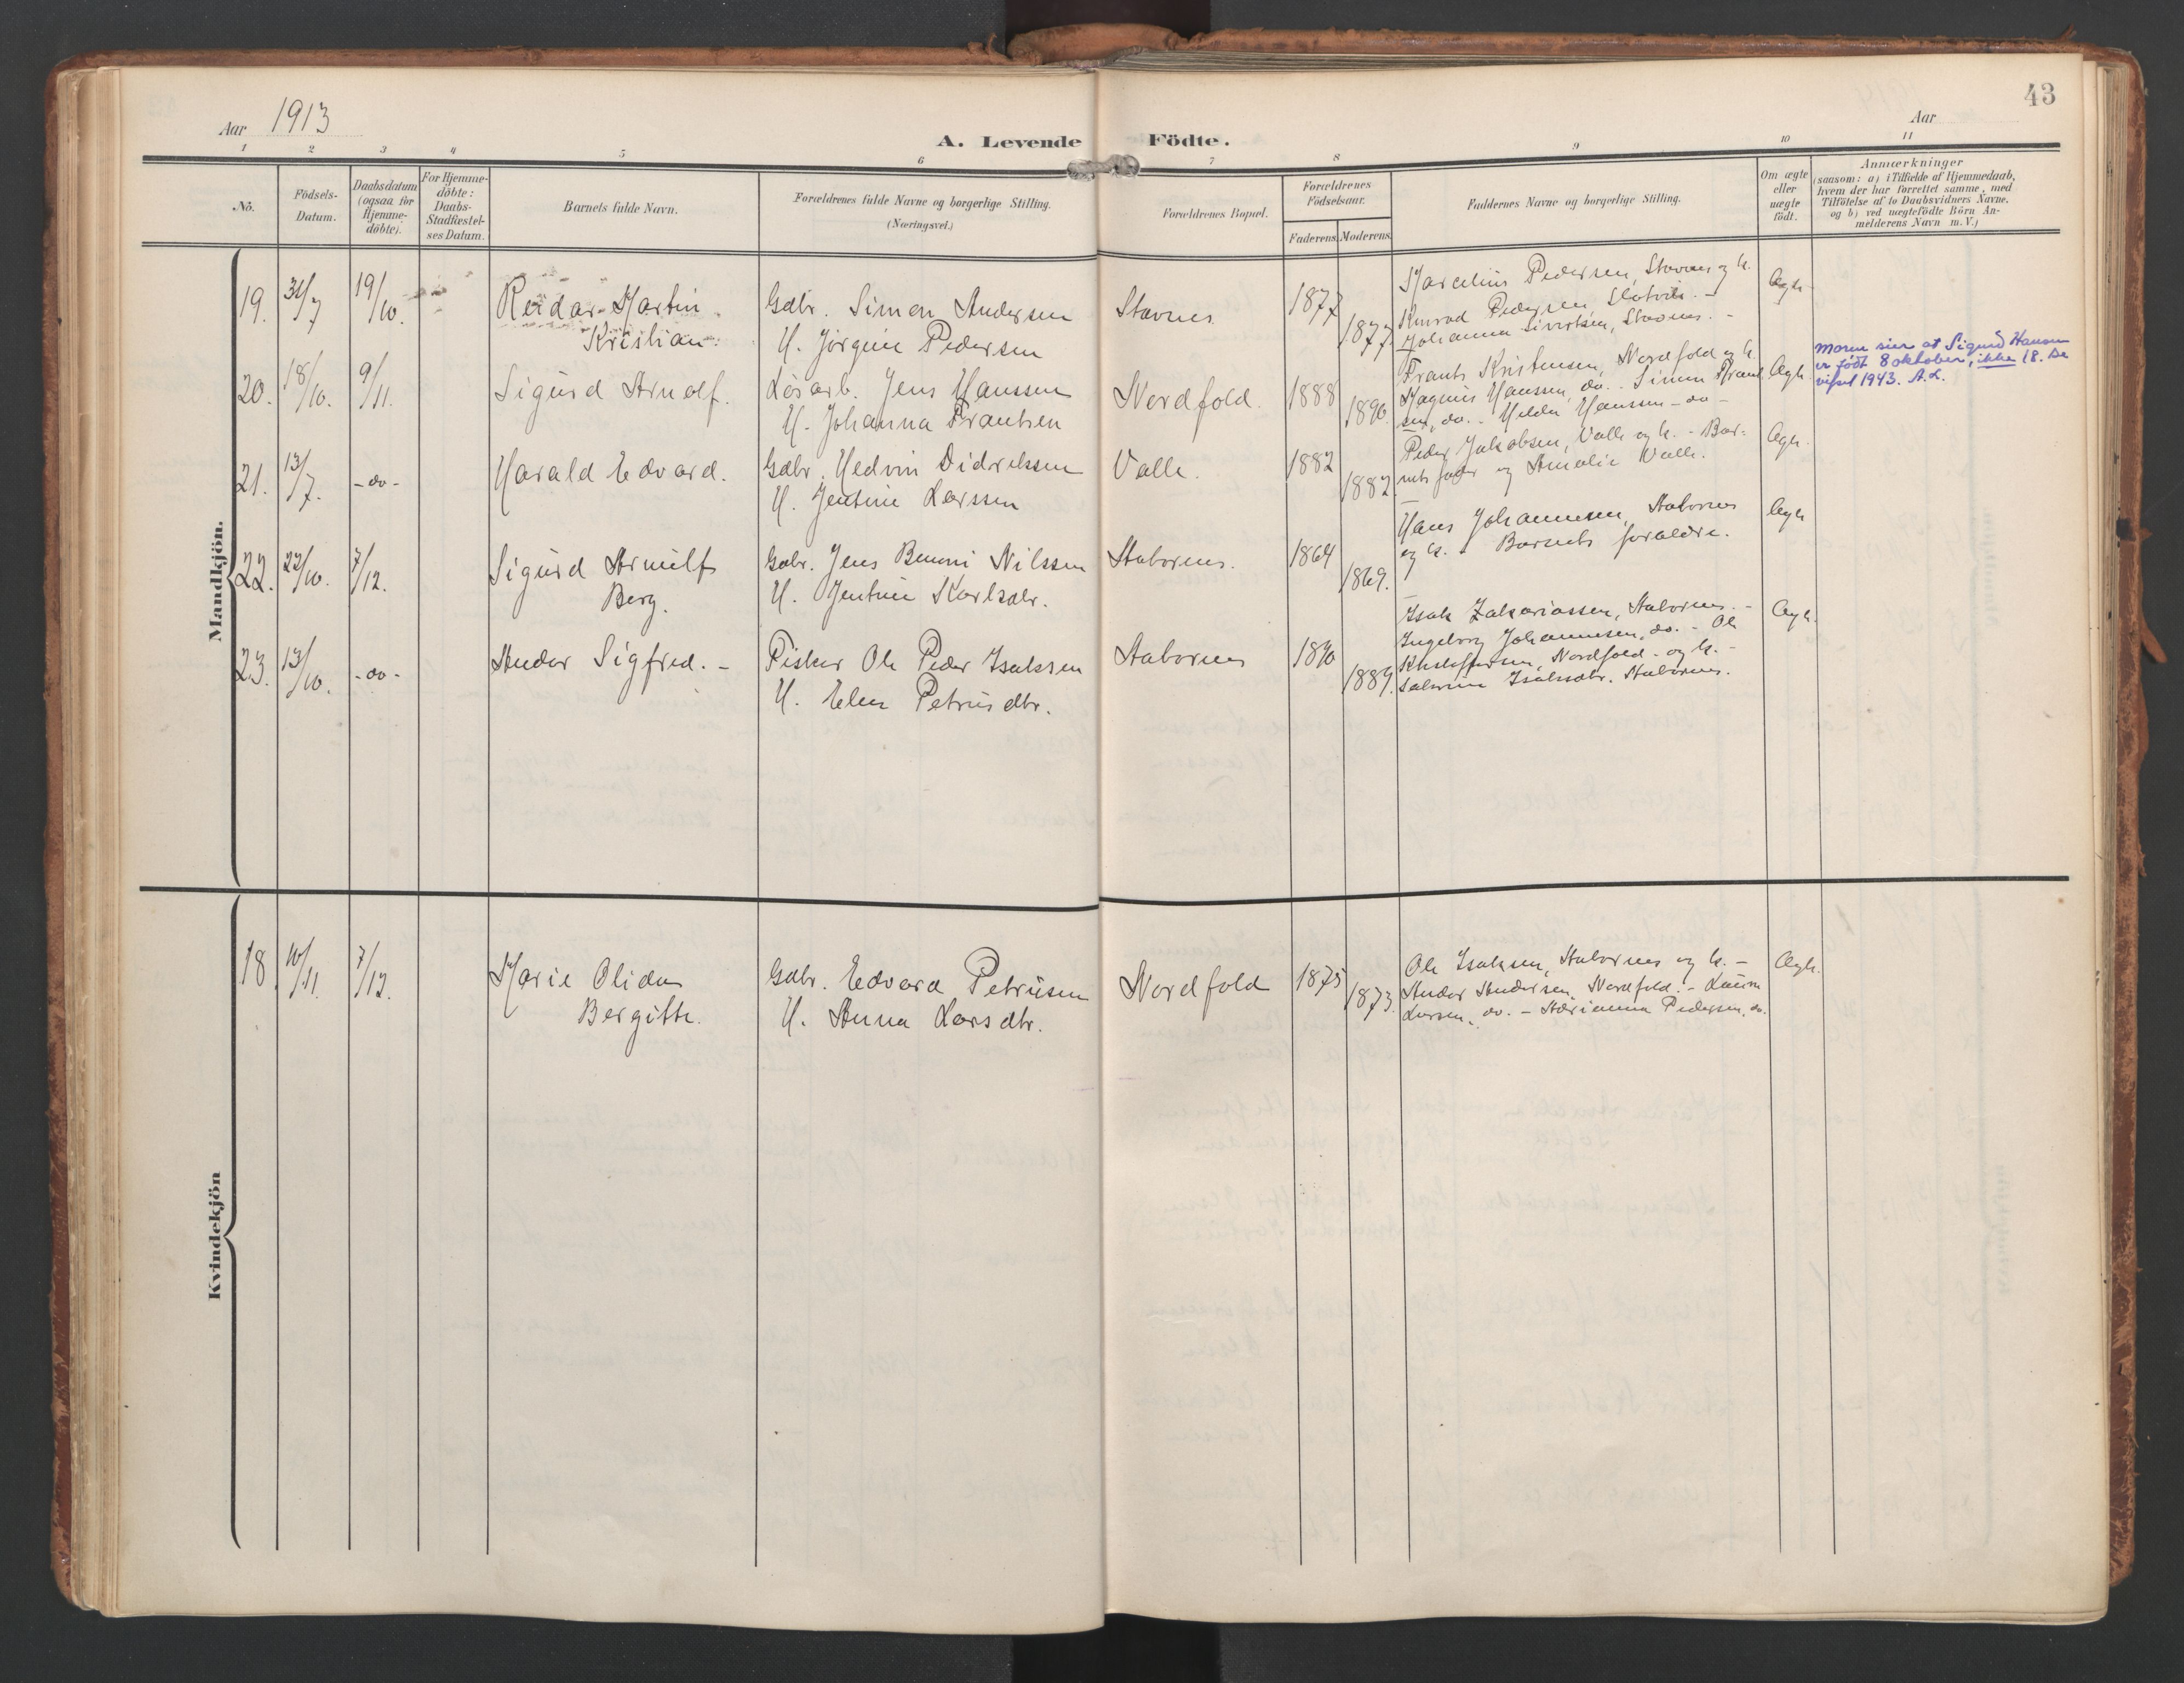 43
Aar 1913
Aar
A. Levende Födte.
1 2 3 4 5 6 7 8 9 10 11
No.
Födsels-
Datum.
Daabsdatum
(ogsaa for
Hjemme-
döbte).
For Hjemme-
döbte:
Daabs-
Stadfæstel-
ses Datum.
Barnets fulde Navn.
Forældrenes fulde Navne og borgerlige Stilling.
(Næringsvei.)
Forældrenes Bopæl.
Forældrenes
Födselsaar.
Faderens.
Moderens.
Faddernes Navne og borgerlige Stilling.
Om ægte
eller
uægte
födt.
Anmærkninger
(saasom: a) i Tilfælde af Hjemmedaab,
hvem der har forrettet samme, med
Tilföielse af to Daabsvidners Navne.
og b) ved uægtefödte Börn An-
melderens Navn m. V.)
Mandkjön.
19. 31/7 19/10.
Reidar Martin
Kristian.
Gdbr. Simon Andersen
H. Jörgine Pedersen
Stavnes
1877
1877
Marcelius Pedersen, Stavnes og h.
Konrad Pedersen
Johanna Sivertsen, Stavnes. -
Ægte
20. 18/10. 9/11.
Sigurd Arnolf.
Lösarb. Jens Hanssen
H. Johanna Frantsen
Nordfold.
1888
1890.
Frants Kristensen, Nordfold og h.
Magnus Hanssen, do. - Simon Frant-
sen, do. - Hilda Hanssen - do -
Ægte
Moren sier at Sigurd Hansen
er födt 8 oktober, ikke 18. Be
vist 1943. A.L.
21. 13/7. - do -
Harald Edvard.
Gdbr. Hedvin Didriksen
H. Jentine Larssen
Valle.
1882
1882.
Peder Jakobsen, Valle og h. - Bar-
nets fader og Amalie Valle.
Ægte.
22. 22/10. 7/12.
Sigurd Arnulf
Berg.
Gdbr. Jens Benoni Nilssen
H. Jentine Karlsdtr.
Stabornes.
1864
1869.
Hans Johannesen, Stabornes
og h. - Barnets foraldre.
Ægte
23. 13/10. - do -
Andor Sigfred. -
Fisker Ole Peder Isaksen
H. Elen Petrusdtr.
Stabornes
1890
1889.
Isak Zakariassen, Stabornes. -
Ingeborg Johannesen, do. - Ole
Kristoffersen, Nordfold - og h. -
Isaksdtr. Stabornes.
Ægte.
Kvindekjön
18. 10/11. 7/12.
Marie Olida
Bergitte.
Gdbr. Edvard Petrusen
H. Anna Larsdtr.
Nordfold
1875
1873.
Ole Isaksen, Stabornes og h. -
Andor Andersen, Nordfold. -
Larsen, do. - Adrianna Pedersen, do.
Ægte.